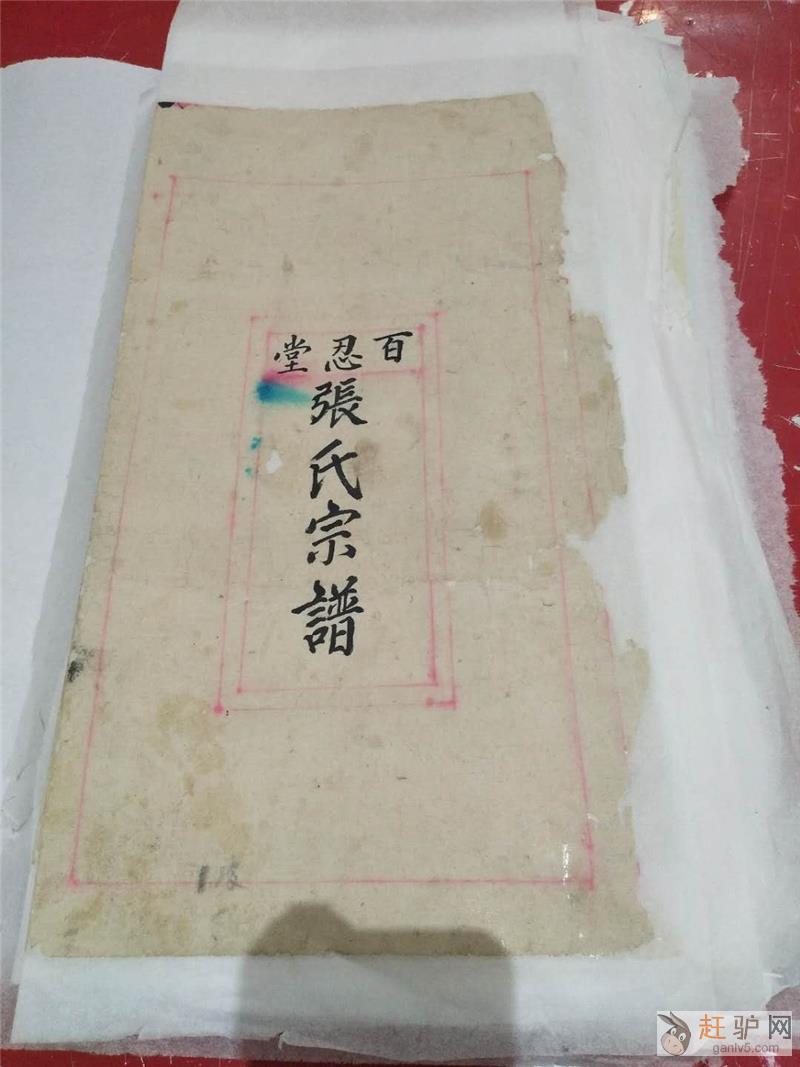 百忍堂
張氏宗譜
赶驴网
ganlv5.com